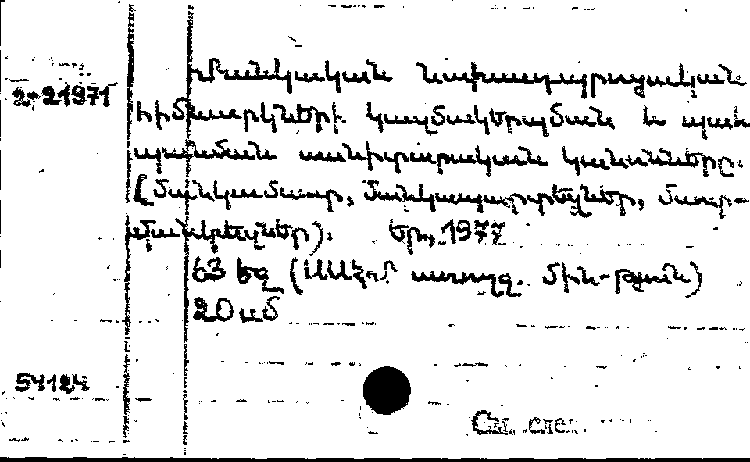 Մանկական նախադպրոցական
2-21971
հիմնարկների կազմակերպման և պահ-
պանման սանիտարական կանոնները.
(Մանկամսուր, մանկապարտեզներ, մսուր-
մանկտեզներ). Եր., 1977
63 եզ (ՍՍՀՄ առողջ. մին-թյուն)
20սմ
54124
См. след.